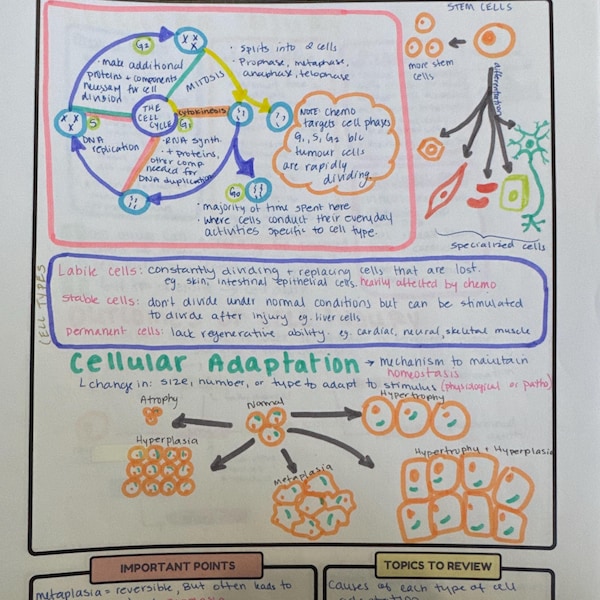 STEM CELLS
more stem
cells
differentiation
specialized cells
G2
X X
X
• make additional
proteins + components
necessary for cell
division
MITOSIS
• splits into 2 cells
• Prophase, metaphase,
anaphase, telophase
THE
CELL
CYCLE
cytokinesis
G1
S
DNA
replication
• RNA synth.
• + proteins,
other comp
needed for
DNA duplication
G0
NOTE: chemo
targets cell phases
G1, S, G2 b/c
tumour cells
are rapidly
dividing
• majority of time spent here
• where cells conduct their everyday
activities specific to cell type.
CELL TYPES
Labile cells: constantly dividing + replacing cells that are lost.
eg. skin, intestinal epithelial cells, heavily affected by chemo
Stable cells: don't divide under normal conditions but can be stimulated
to divide after injury eg. liver cells
permanent cells: lack regenerative ability. eg. cardiac, neural, skeletal muscle
Cellular Adaptation → mechanism to maintain
homeostasis
change in: size, number, or type to adapt to stimulus (physiological or patho)
Atrophy
Normal
Hypertrophy
Hyperplasia
Metaplasia
Hypertrophy + Hyperplasia
IMPORTANT POINTS
TOPICS TO REVIEW
metaplasia = reversible, But often leads to
Causes of each type of cell